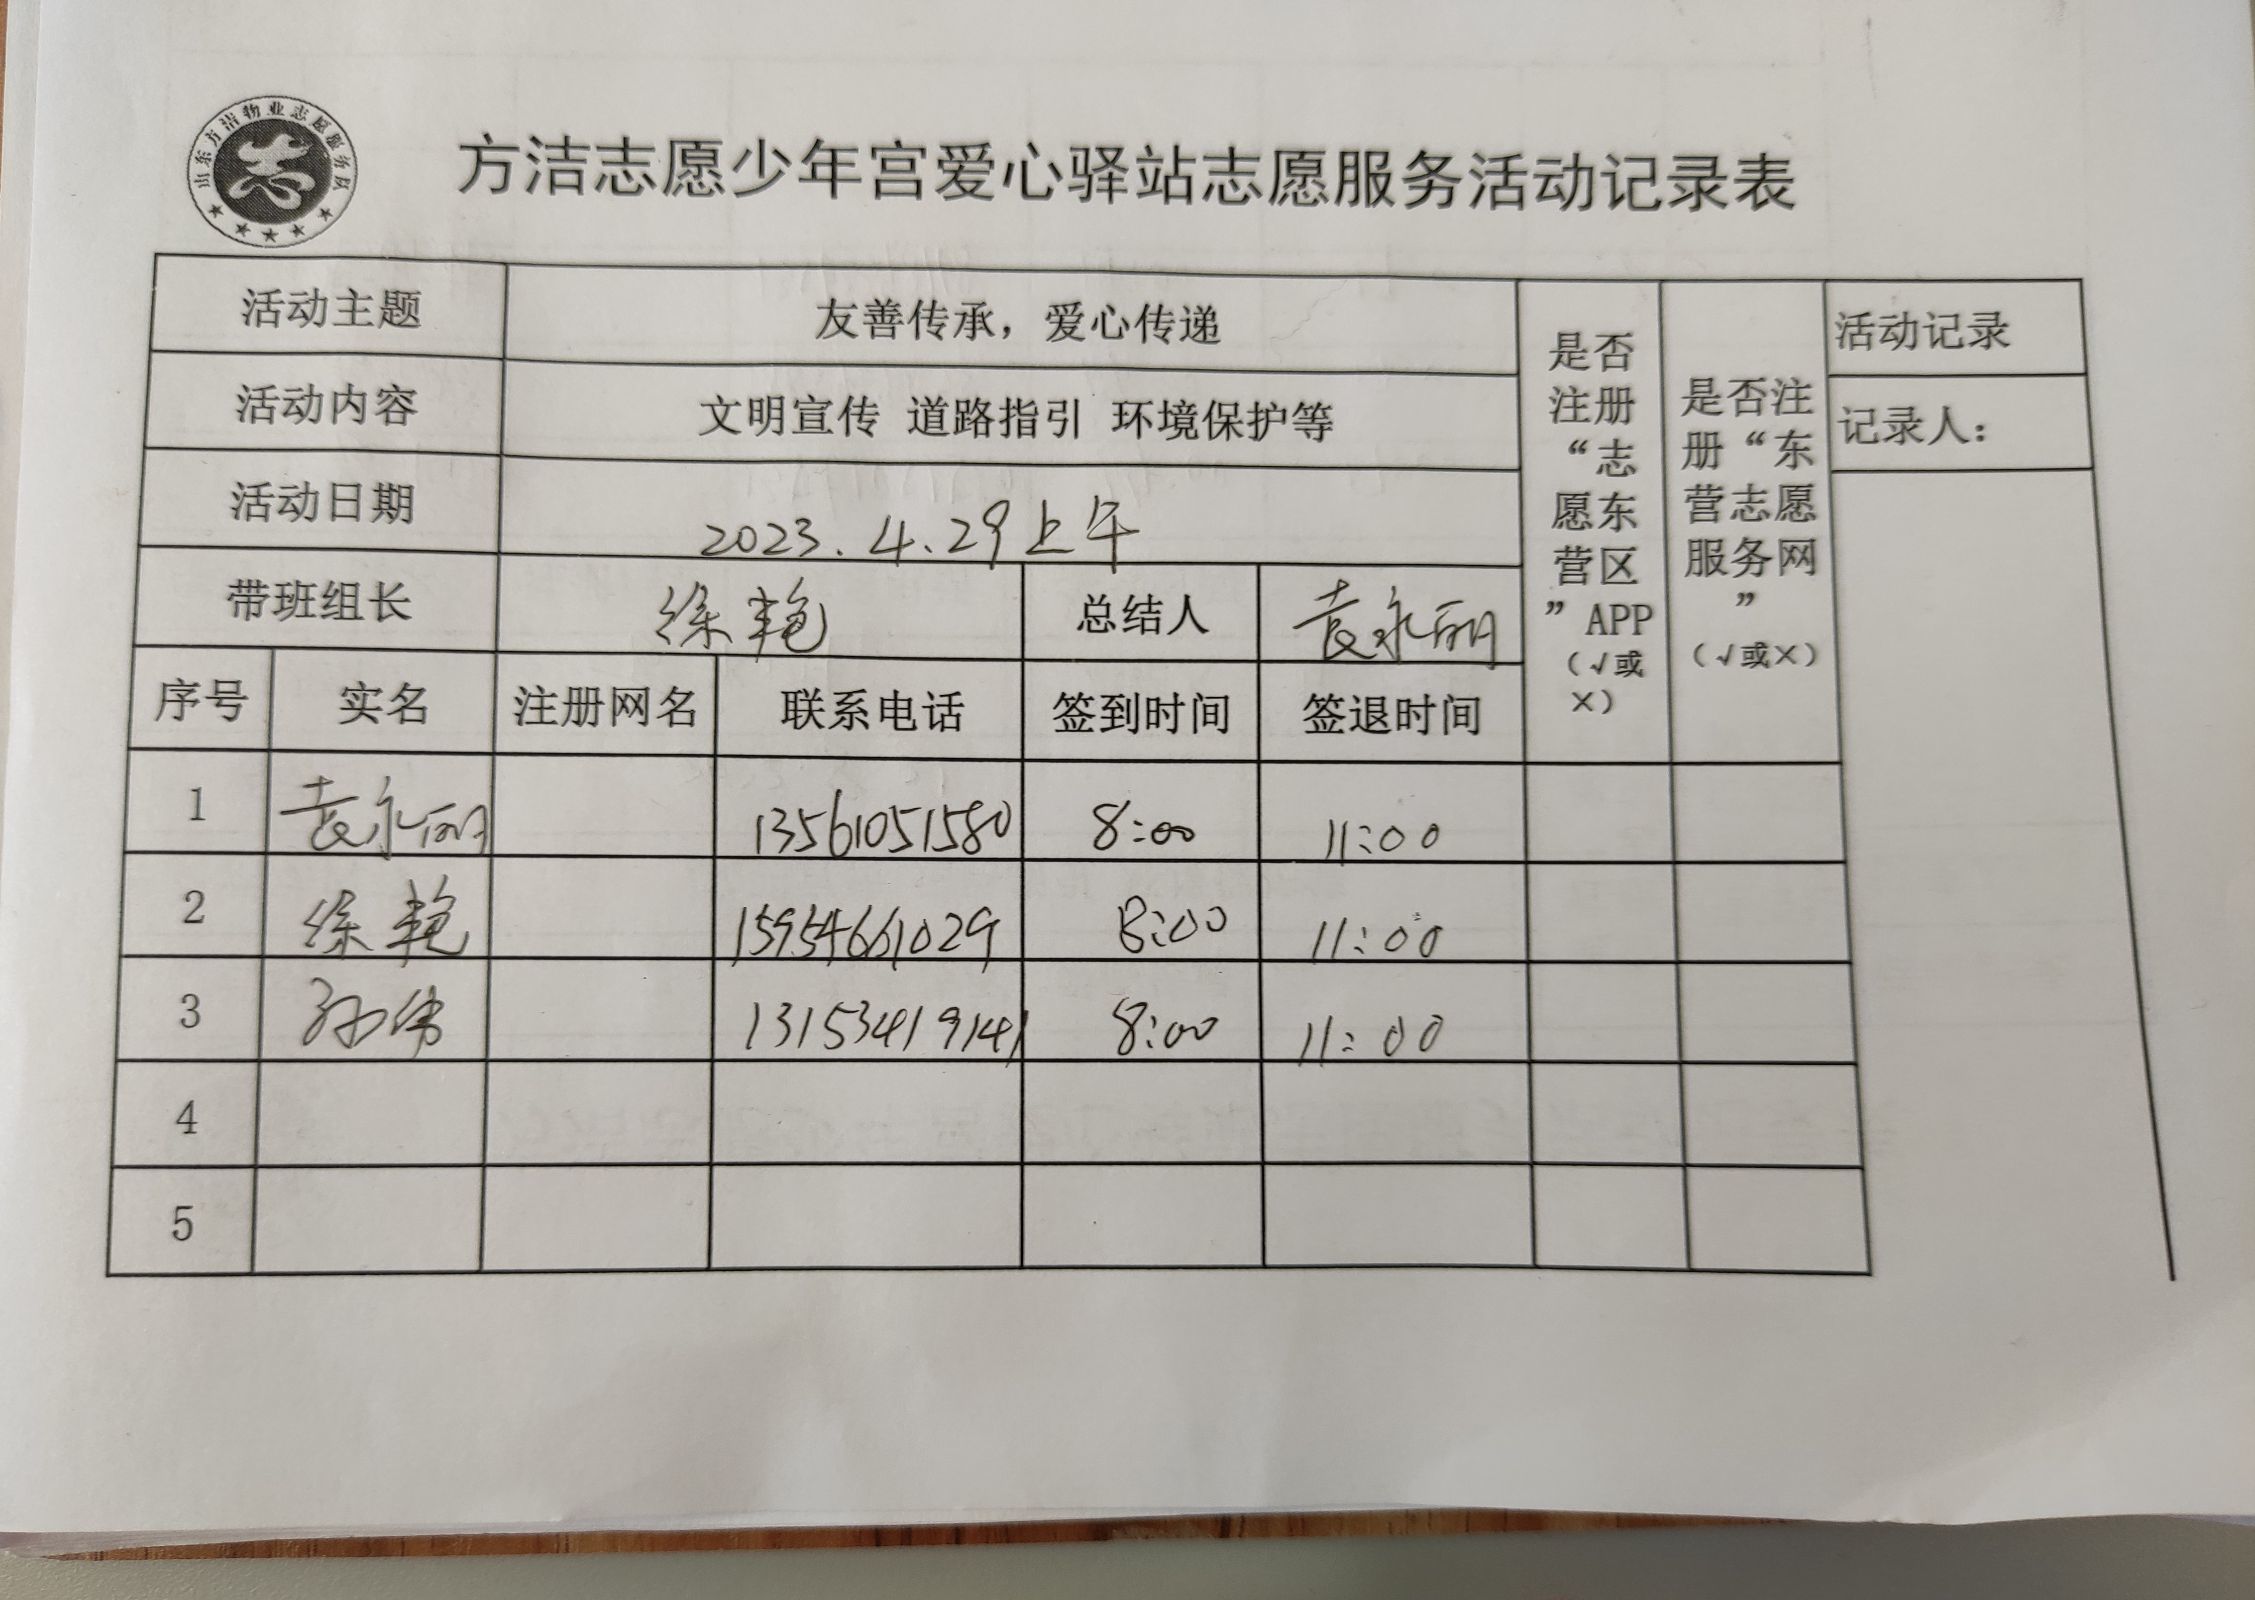 山东方洁物业志愿服务队
方洁志愿少年宫爱心驿站志愿服务活动记录表
活动主题 友善传承，爱心传递
活动内容 文明宣传 道路指引 环境保护等
活动日期 2023.4.29上午
带班组长 徐艳 总结人 袁永丽
序号 实名 注册网名 联系电话 签到时间 签退时间
是否
注册
“志
愿东
营区
”APP
（√或
×）
是否注
册“东
营志愿
服务网
”
（√或×）
活动记录
记录人：
1 袁永丽 13561051580 8:00 11:00
2 徐艳 15954661029 8:00 11:00
3 孙伟 13153419141 8:00 11:00
4
5